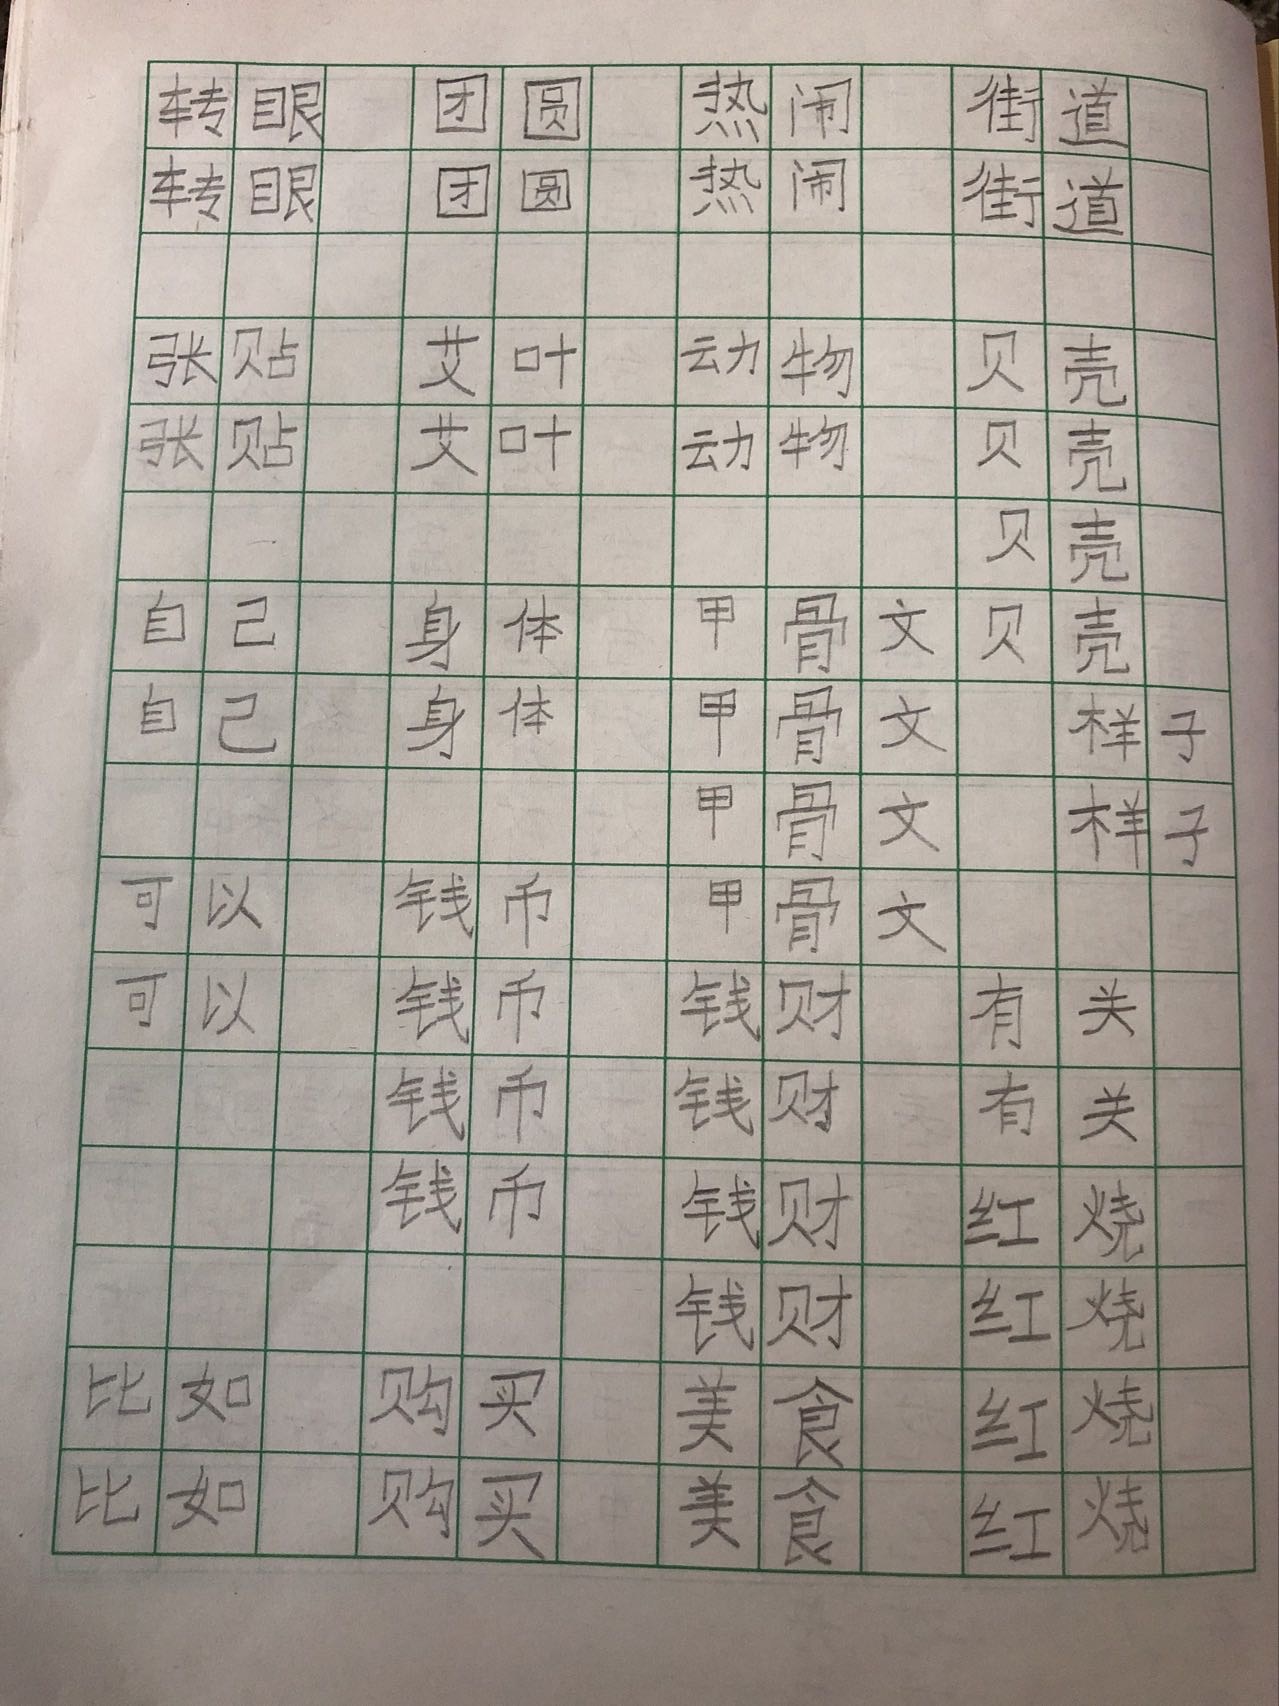 转眼 团圆 热闹 街道
转眼 团圆 热闹 街道
张贴 艾叶 动物 贝壳
张贴 艾叶 动物 贝壳
贝壳
自己 身体 甲骨文 贝壳
自己 身体 甲骨文 样子
甲骨文 样子
可以 钱币 甲骨文
可以 钱币 钱财 有关
钱币 钱财 有关
钱币 钱财 红烧
钱财 红烧
比如 购买 美食 红烧
比如 购买 美食 红烧